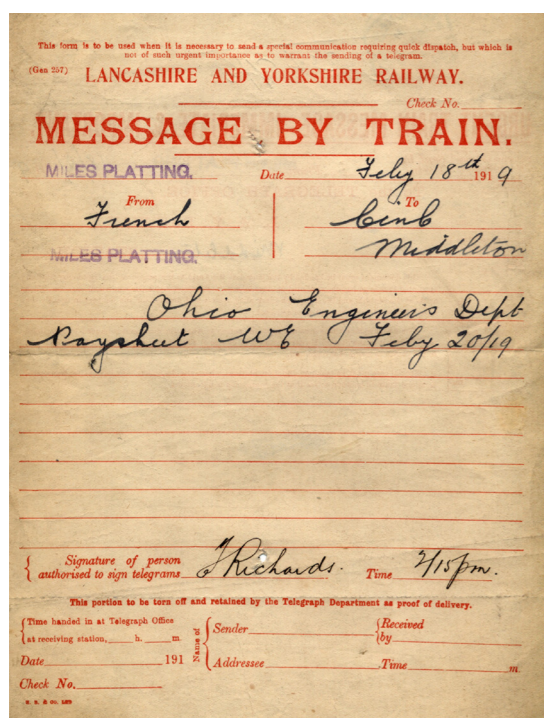 This form is to be used when it is necessary to send a special communication requiring quick dispatch, but which is
not of such urgent importance as to warrant the sending of a telegram.
(Gen 257) LANCASHIRE AND YORKSHIRE RAILWAY.
Check No.
MESSAGE BY TRAIN.
MILES PLATTING. Date Feby 18th 1919
From To
French
Middleton
MILES PLATTING.
Ohio Engineers Dept
Paysheet WE Feby 20/19
Signature of person
authorised to sign telegrams Richards. Time 2/15pm.
This portion to be torn off and retained by the Telegraph Department as proof of delivery.
Time handed in at Telegraph Office
at receiving station, h. m.
Name of Sender Received
by
Date 191 Addressee Time m.
Check No.